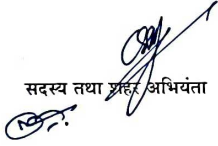 सदस्य तथा शहर अभियंता